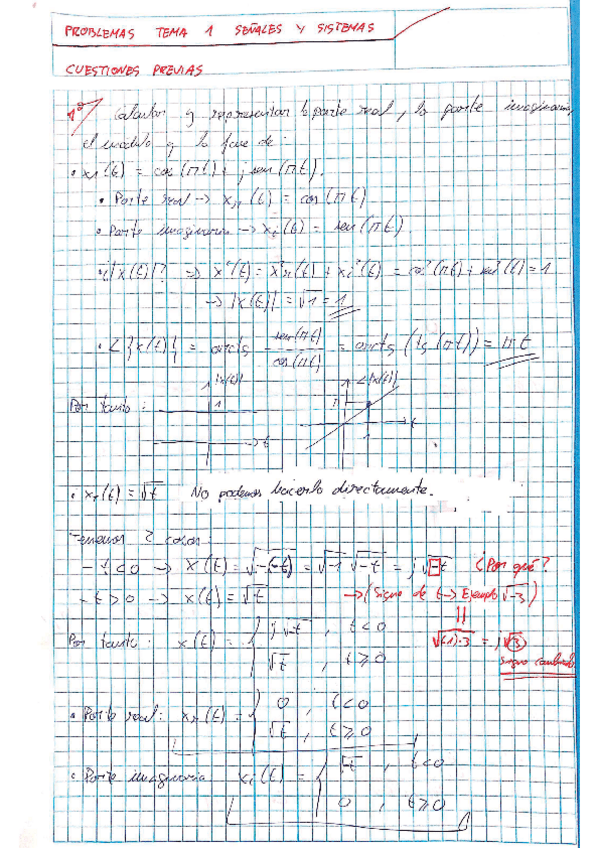 PROBLEMAS TEMA 1 SEÑALES Y SISTEMAS
CUESTIONES PREVIAS
1º Calcular y representar la parte real, la parte imaginaria,
el modulo y la fase de:
• x1(t) = cos(πt) + j sen(πt).
• Parte real → xr(t) = cos(πt)
• Parte imaginaria → xi(t) = sen(πt).
• ¿|x(t)|? ⇒ x²(t) = x²r(t) + xi²(t) = cos²(πt) + sen²(t) = 1
→ |x(t)| = √1 = 1
• ∠{x(t)} = arctg sen(πt)/cos(πt) = arctg (tg(πt)) = πt
|x(t)| ∠|x(t)|
Por tanto: 1
t t
• x2(t) = √t No podemos hacerlo directamente.
Tenemos 2 casos:
- t<0 → x(t) = √-(-t) = √-1 √-t = j√-t ¿Por qué?
- t>0 → x(t) = √t → (Signo de t → Ejemplo √-3)
Por tanto: x(t) = { j√-t , t<0
√(-1)·3 = j√3
√t , t≥0
signo cambiado
• Parte real: xr(t) = { 0 , t<0
√t , t≥0
• Parte imaginaria xi(t) = { √-t , t<0
0 , t≥0